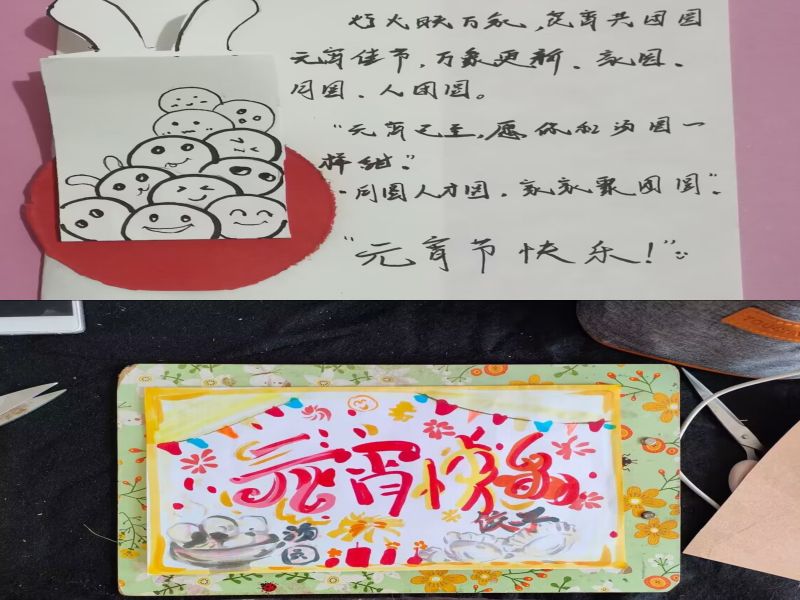 灯火映万家,元宵共团圆
元宵佳节,万象更新、家圆、
月圆、人团圆。
“元宵已至,愿你和汤圆一
样甜”
“月圆人才圆,家家聚团圆”
“元宵节快乐!”
元宵快乐
汤圆
饺子